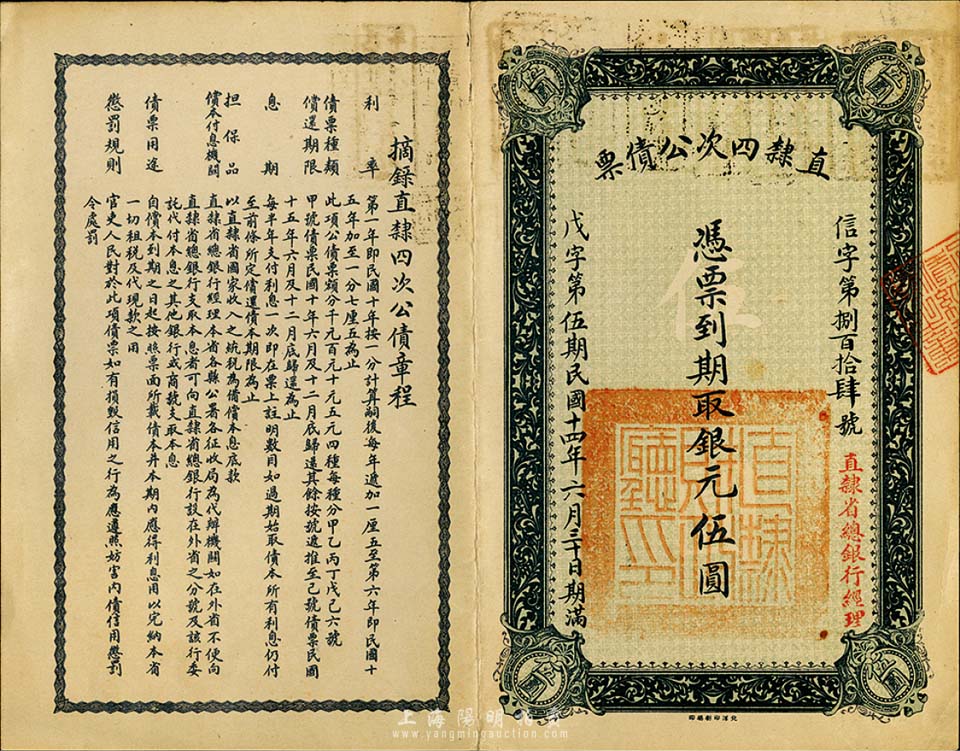 直隸四次公債票
信字第捌百拾肆號
直隸省總銀行經理
憑票到期取銀元伍圓
戊字第伍期民國十四年六月三十日期滿
伍
伍圓
伍圓
伍圓
伍圓
直隸財政廳印
北洋印刷局印
摘錄直隸四次公債章程
利率 第一年即民國十年按一分計算嗣後每年遞加一厘五至第六年即民國十
五年加至一分七厘五為止
債票種類 此項公債票額分千元百元十元五元四種每種分甲乙丙丁戊己六號
償還期限 甲號債票民國十年六月及十二月底歸還其餘按號遞推至己號債票民國
十五年六月及十二月底歸還為止
息期 每半年支付利息一次即在票上註明數目如過期始取債本所有利息仍付
至前條所定償還債本期限為止
担保品 以直隸省國家收入之統稅為備償本息底款
償本付息機關 直隸省總銀行經理本省各縣公署各征收局為代辦機關如在外省不便向
直隸省總銀行支取本息者可向直隸省總銀行設在外省之分號及該行委
託代付本息之其他銀行或商號支取本息
債票用途 自償本到期之日起按照票面所載債本并本期內應得利息用以完納本省
一切租稅及代現款之用
懲罰規則 官吏人民對於此項債票如有損毀信用之行為應遵照妨害內債信用懲罰
令處罰
上海陽明拍賣
www.yangmingauction.com